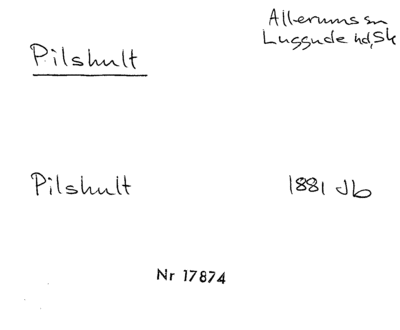 Allerums sn
Luggude hd, Sk
Pilshult
Pilshult 1881 Jb
Nr 17874